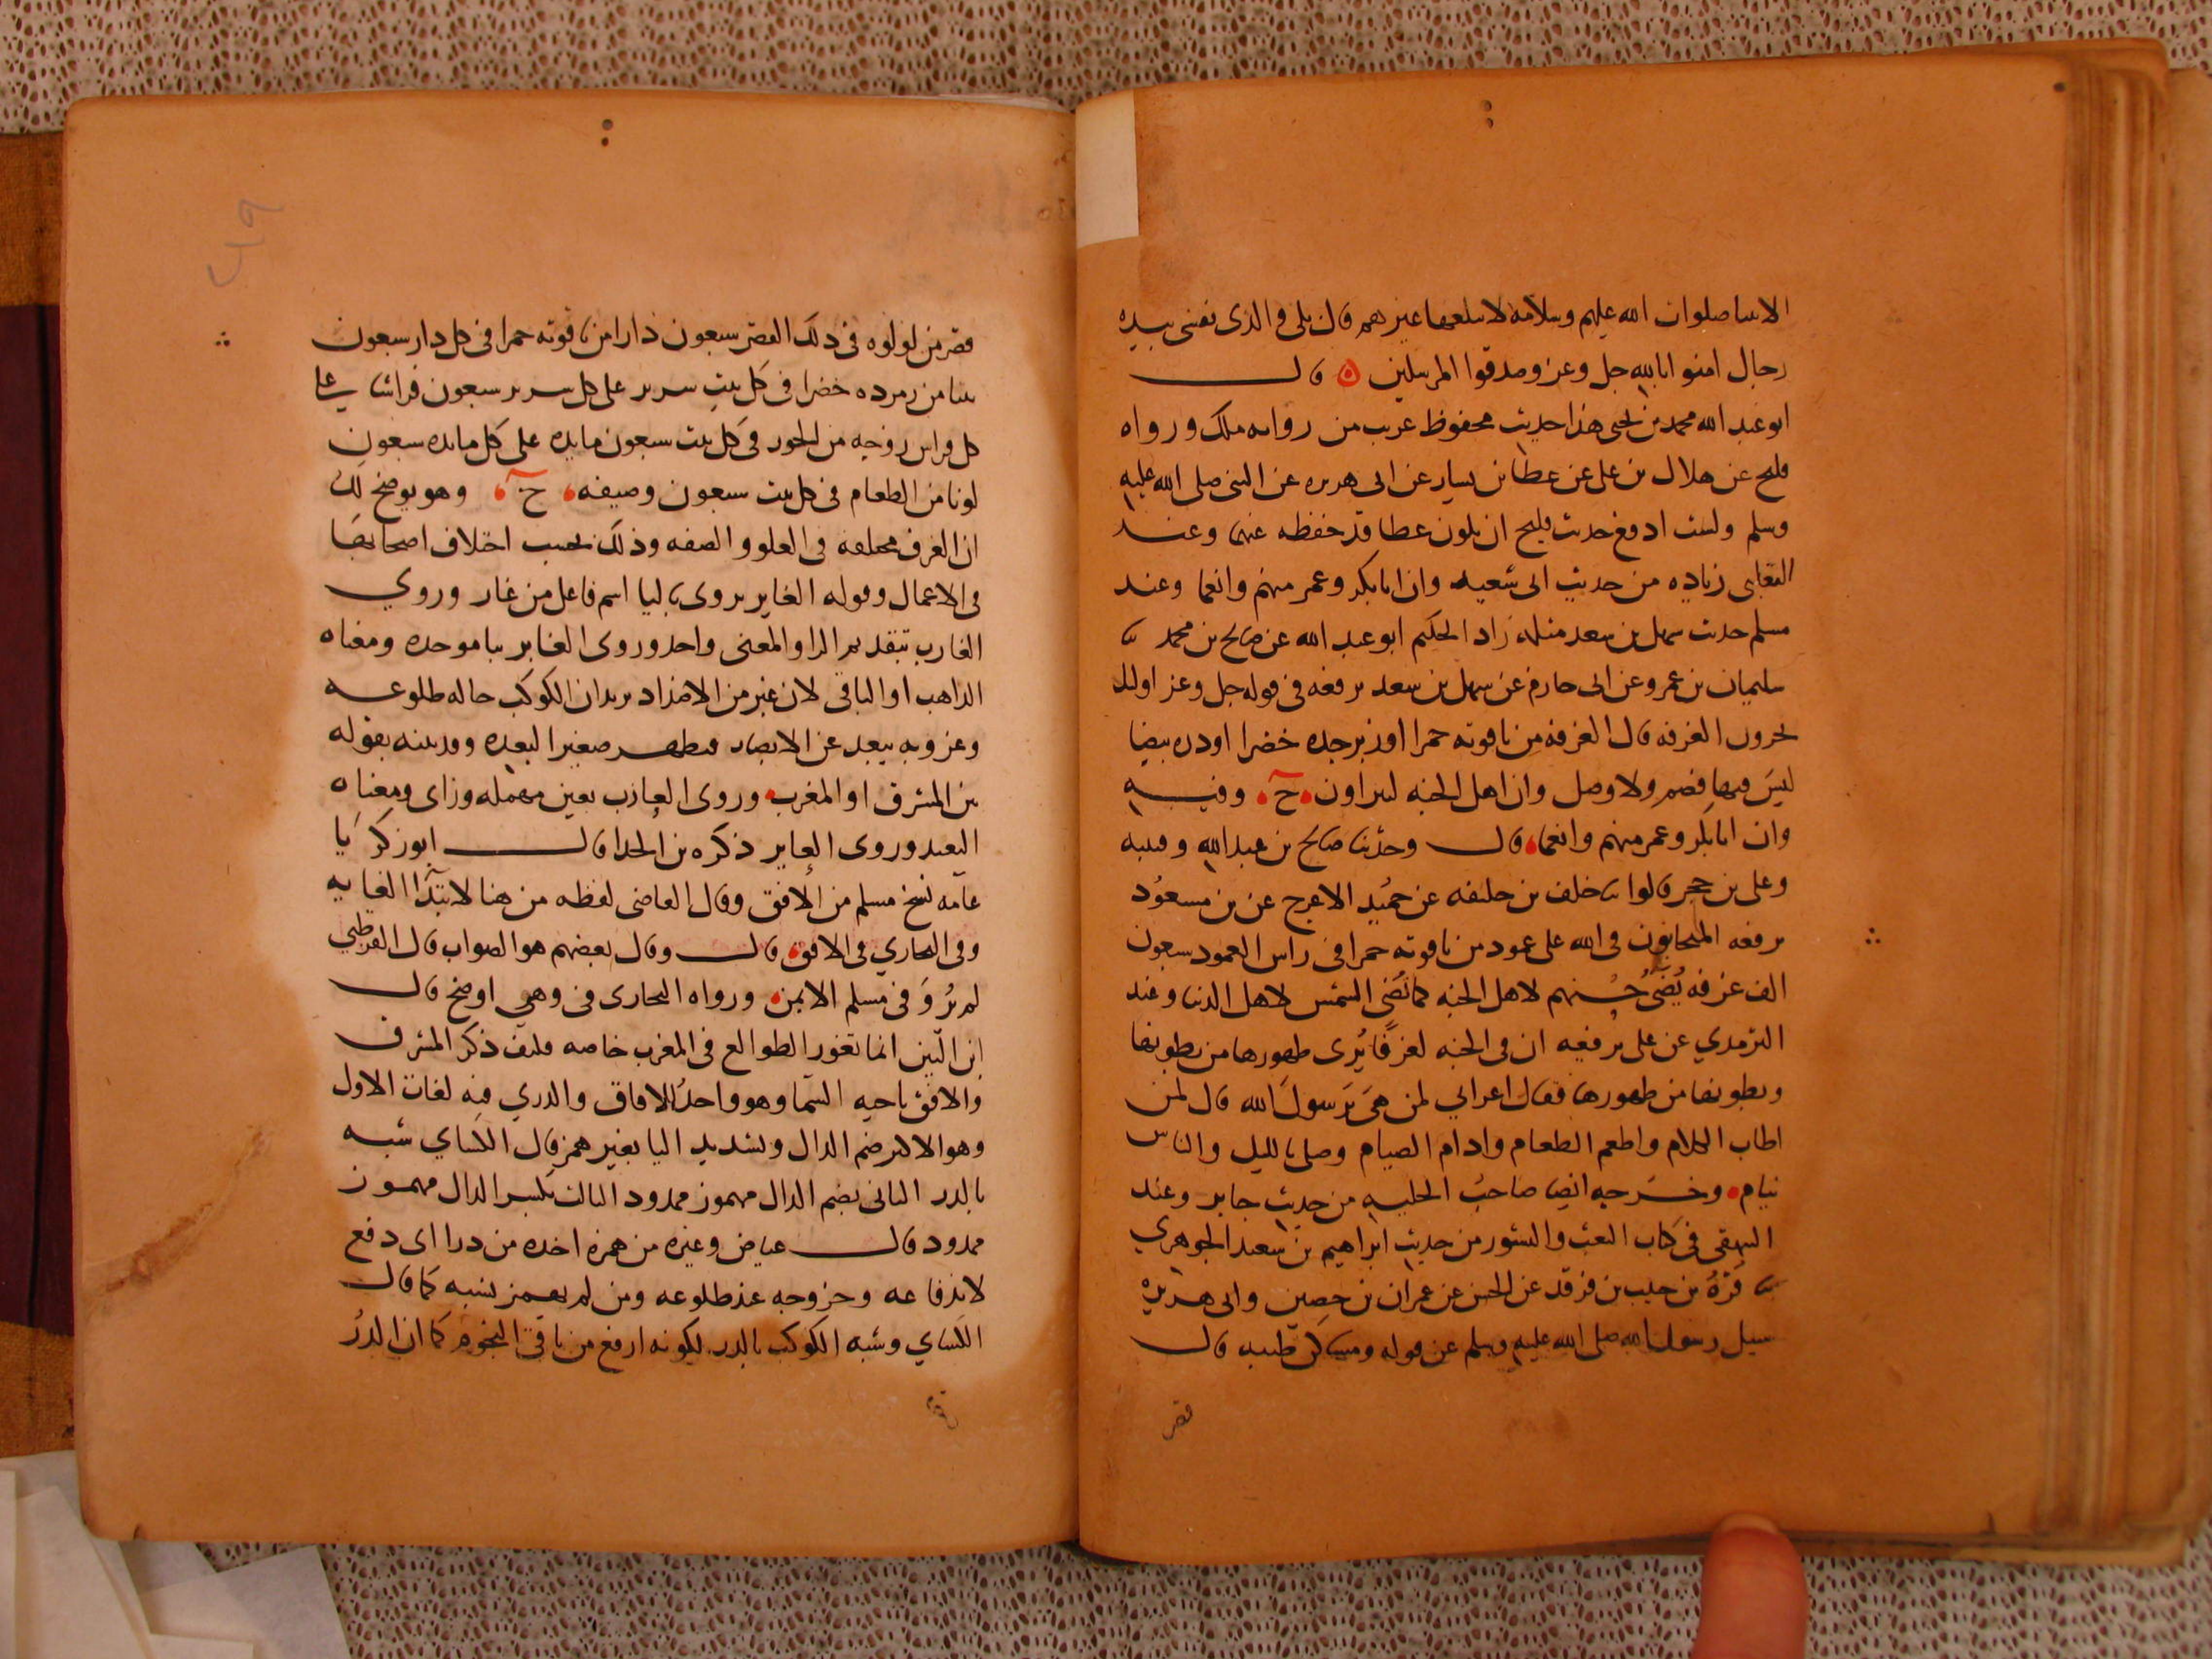 الانبيا صلوات الله عليهم وسلامه لا يبلغها غيرهم قال بلى والذى نفسى بيده
رجال امنوا بالله جل وعز وصدقوا المرسلين ٥ قال
ابو عبد الله محمد بن يحيى هذا حديث محفوظ غريب من رواية ملك ورواه
فليح عن هلال بن على عن عطا بن يسار عن ابى هريره عن النبى صلى الله عليه
وسلم ولست ادفع حديث فليح ان يكون عطا قد حفظه عنهما وعند
زياده من حديث ابى سعيد وان ابا بكر وعمر منهم وانعما وعند
مسلم حديث سهل بن سعد مثله زاد الحكيم ابو عبد الله عن صالح بن محمد ثنا
سليمان بن عمرو عن ابى حازم عن سهل بن سعد يرفعه فى قوله جل وعز اوليك
يجزون الغرفه قال الغرفه من ياقوته حمرا او زبرجده خضرا او دره بيضا
ليس فيها فصم ولا وصل وان اهل الجنه ليتراون ح وفيه
وان ابا بكر وعمر منهم وانعما قال وحدثنا صالح بن عبد الله وقتيبه
وعلى بن حجر قالوا ثنا خلف بن خليفه عن حميد الاعرج عن بن مسعود
يرفعه المتحابون فى الله على عمود من ياقوته حمرا فى راس العمود سبعون
الف غرفه يضى حسنهم لاهل الجنه كما تضى الشمس لاهل الدنيا وعند
الترمدي عن على يرفعه ان فى الجنه لغرفا يرى ظهورها من بطونها
وبطونها من ظهورها فقال اعرابي لمن هى يرسول الله قال لمن
اطاب الكلام واطعم الطعام وادام الصيام وصلى بالليل والناس
نيام وخرجه ايضا صاحب الحليه من حديث جابر وعند
البيهقى فى كتاب البعث والنشور من حديث ابراهيم بن سعيد الجوهري
ثنا قرة بن حبيب بن فرقد عن الحسن عن عمران بن حصين وابى هريره
سيل رسول الله صلى الله عليه وسلم عن قوله ومساكن طيبه قال
قصر
قصر من لولوه فى ذلك القصر سبعون دارا من ياقوته حمرا فى كل دار سبعون
بيتا من زمرده خضرا فى كل بيت سرير على كل سرير سبعون فراشا على
كل فراش زوجه من الحور فى كل بيت سبعون مايده على كل مايده سبعون
لونا من الطعام فى كل بيت سبعون وصيفه ح وهو يوضح لك
ان الغرف مختلفه فى العلو والصفه وذلك بحسب اختلاف اصحابها
فى الاعمال وقوله الغاير يروى باليا اسم فاعل من غار وروي
الغارب بتقديم الرا والمعنى واحد وروى الغابر ببا موحده ومعناه
الذاهب او الباقى لان غبر من الاضداد يريد ان الكوكب حاله طلوعه
وغروبه يبعد عن الابصار فيظهر صغيرا لبعده وقد بينه بقوله
من المشرق او المغرب وروى العازب بعين مهمله وزاى ومعناه
البعيد وروى العاير ذكره بن الحدا قال ابو زكريا
عامه نسخ مسلم من الافق وقال القاضى لفظه من هنا لابتدا الغايه
وفى البخاري فى الافق قال وقال بعضهم هو الصواب قال القرطبي
لم يرو فى مسلم الا بمن ورواه البخارى فى وهي اوضح قال
ابن التين انما تغور الطوالع فى المغرب خاصه فكيف ذكر المشرق
والافق ناحيه السما وهو واحد الافاق والدري فيه لغات الاول
وهو الاكثر ضم الدال وتشديد اليا بغير همز قال الكساي شبه
بالدر الثانى بضم الدال مهموز ممدود الثالث بكسر الدال مهموز
ممدود قال عياض وغيره من همزه اخذه من درا اى دفع
لاندفاعه وخروجه عند طلوعه ومن لم يهمز نسبه كما قال
الكساي وشبه الكوكب بالدر لكونه ارفع من باقى النجوم كما ان الدر